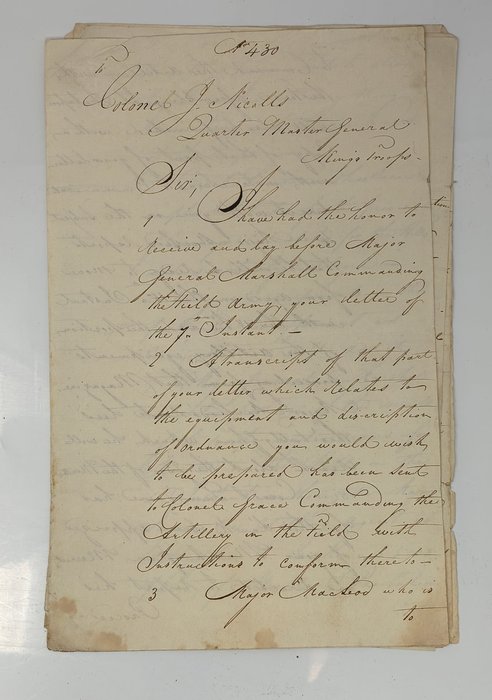 No 430
To
Colonel J. Nicolls
Quarter Master General
Kings Troops -
Sir,
1 I have had the honor to
receive and lay before Major
General Marshall Commanding
the Field Army, your letter of
the 7th Instant. -
2 A transcript of that part
of your letter which relates to
the equipment and discription
of ordnance you would wish
to be prepared has been sent
to Colonel Grace Commanding the
Artillery in the Field with
Instructions to conform there to -
3 Major Macleod who is
to